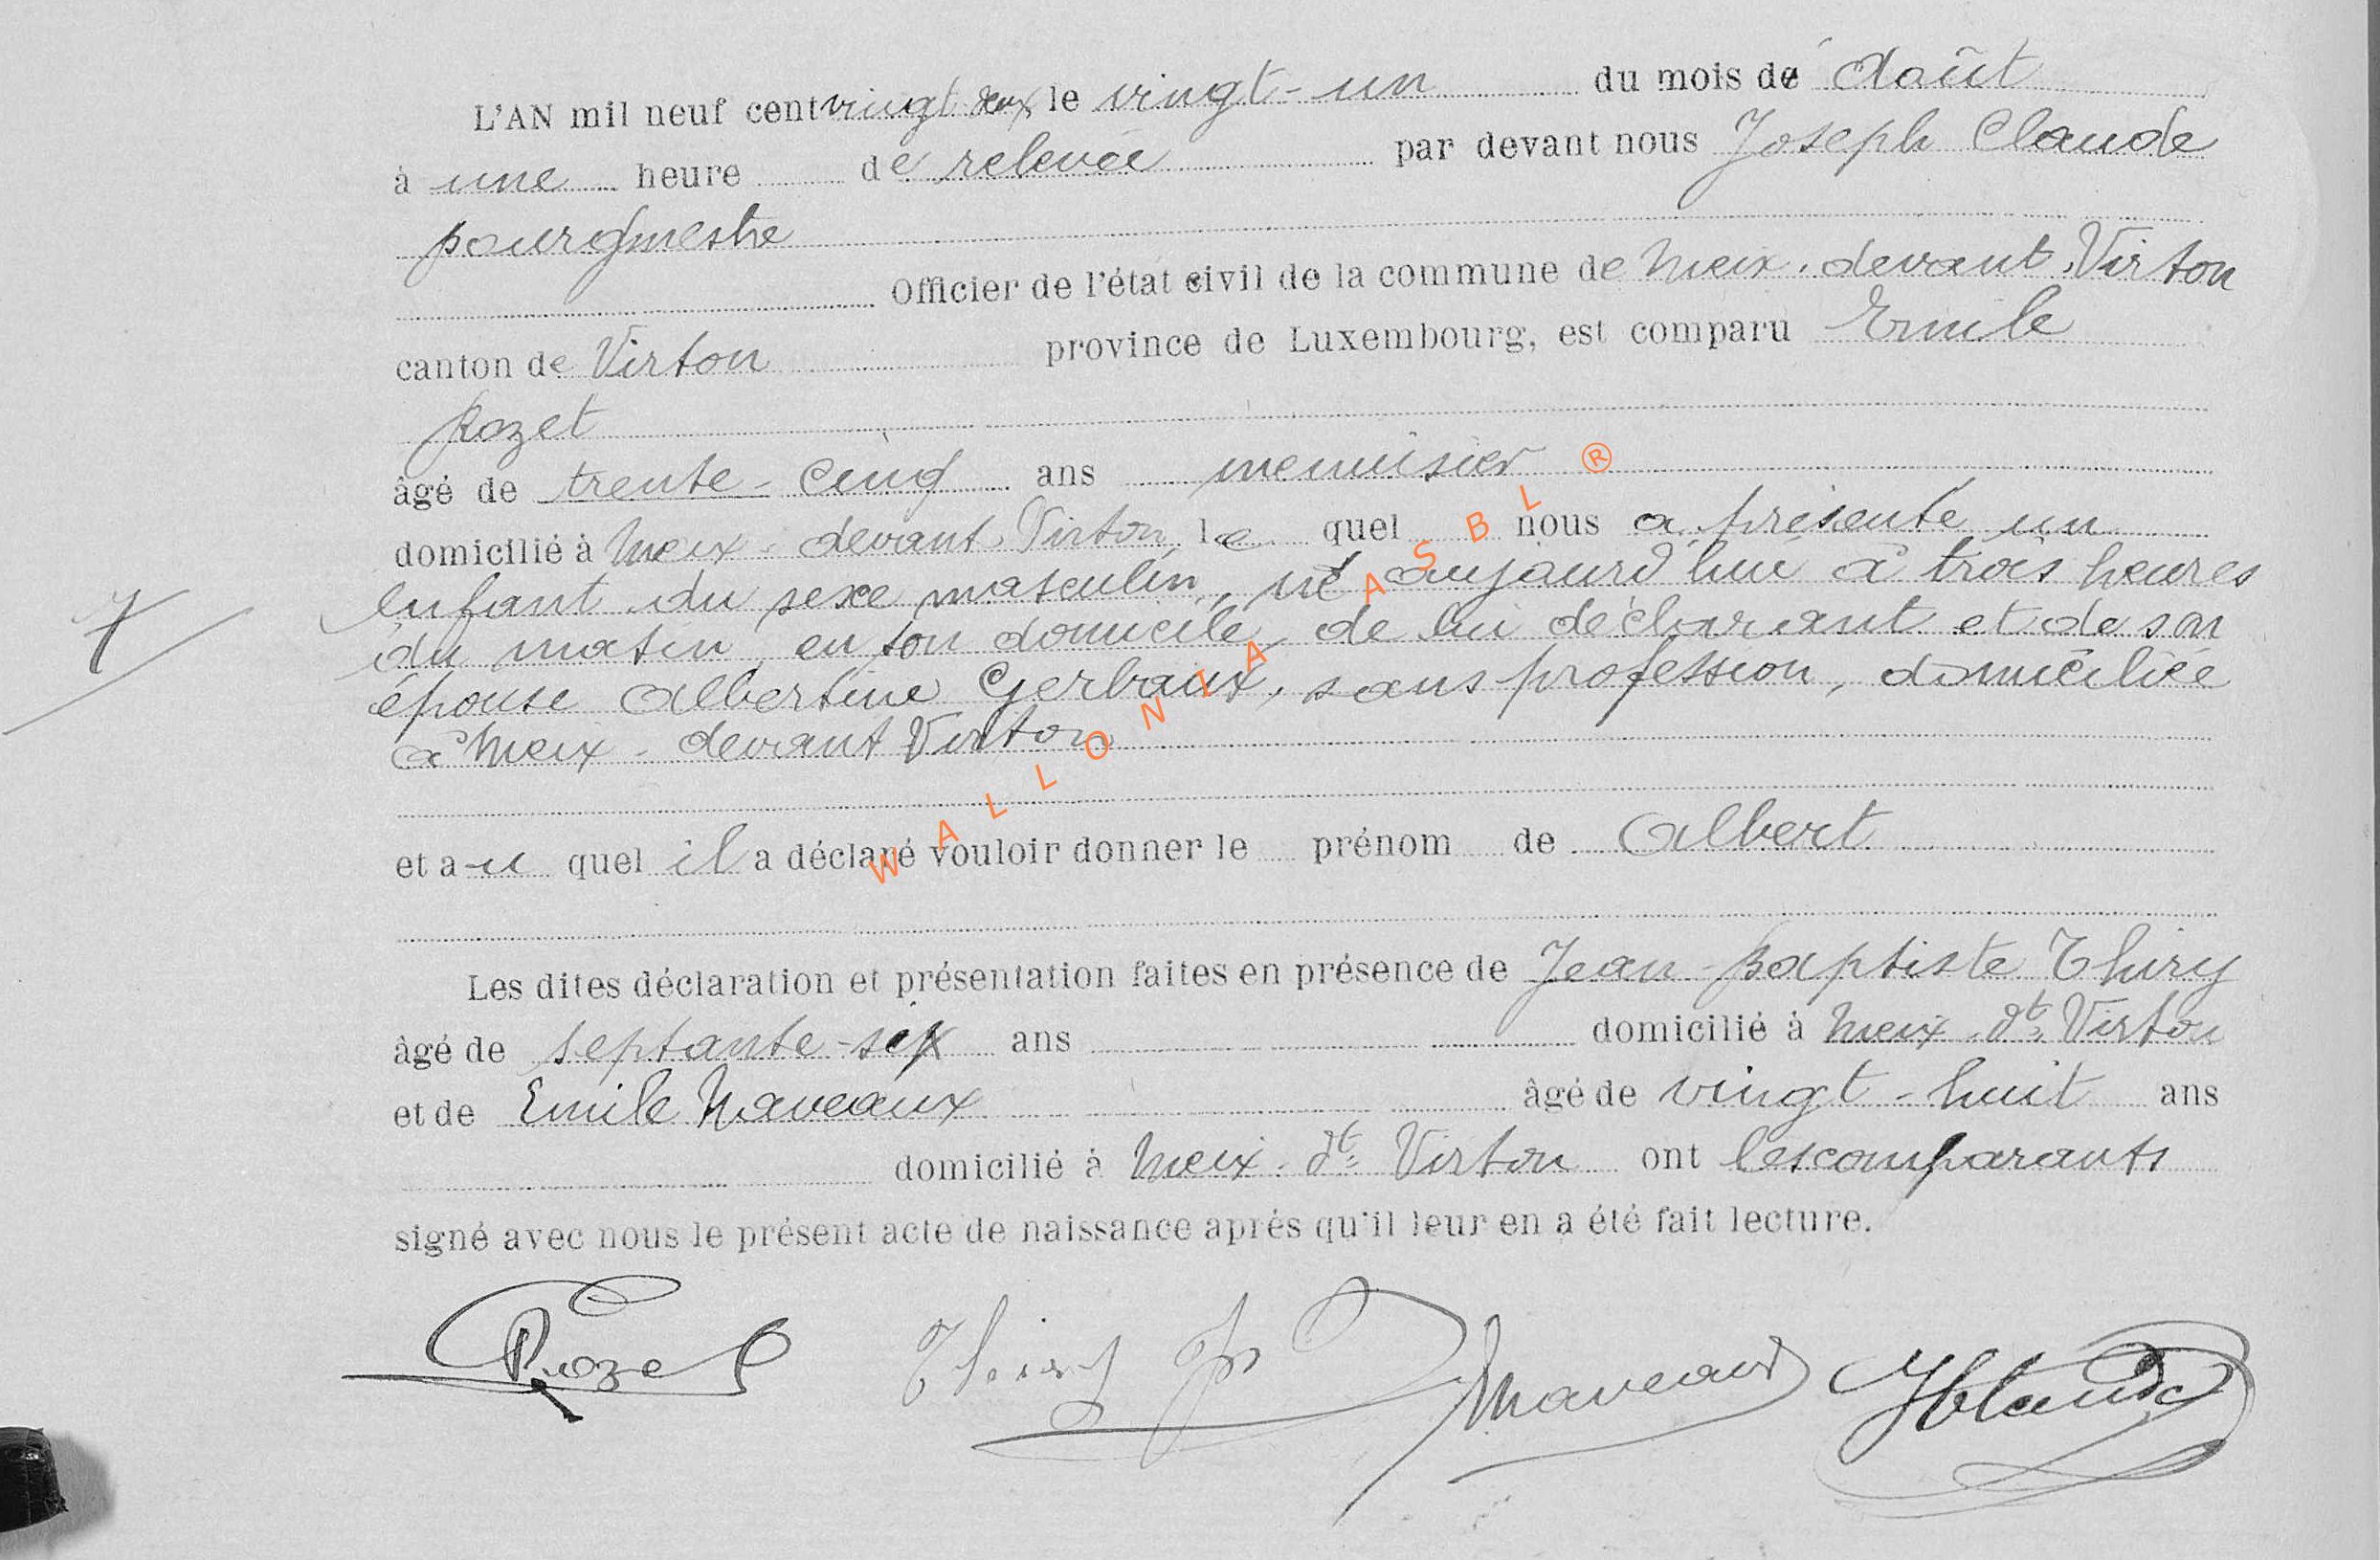 L'AN mil neuf cent vingt deux le vingt-un du mois de Août
à une heure de relevée par devant nous Joseph Claude
bourgmestre
Officier de l'état civil de la commune de Meix-devant-Virton
canton de Virton province de Luxembourg, est comparu Emile
Rozet
âgé de trente-cinq ans menuisier
domicilié à Meix-devant-Virton le quel nous a présenté un
enfant du sexe masculin, né aujourd'hui à trois heures
du matin, en son domicile, de lui déclarant et de son
épouse Albertine Gerbaux, sans profession, domiciliée
à Meix-devant Virton
et au quel il a déclaré vouloir donner le prénom de Albert
Les dites déclaration et présentation faites en présence de Jean-Baptiste Thiry
âgé de septante-six ans domicilié à Meix-dt-Virton
et de Emile Naveaux âgé de vingt-huit ans
domicilié à Meix-dt-Virton ont les comparants
signé avec nous le présent acte de naissance après qu'il leur en a été fait lecture.
7
Rozet Thiry JB Naveaux JClaude
WALLONIA ASBL ®